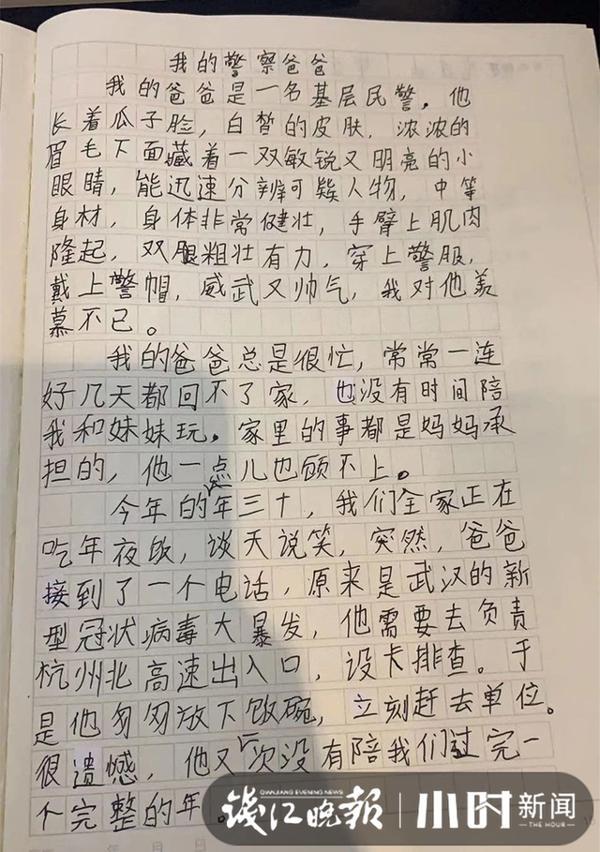 我的警察爸爸
我的爸爸是一名基层民警，他
长着瓜子脸，白皙的皮肤，浓浓的
眉毛下面藏着一双敏锐又明亮的小
眼睛，能迅速分辨可疑人物，中等
身材，身体非常健壮，手臂上肌肉
隆起，双腿粗壮有力，穿上警服，
戴上警帽，威武又帅气，我对他羡
慕不已。
我的爸爸总是很忙，常常一连
好几天都回不了家，也没有时间陪
我和妹妹玩。家里的事都是妈妈承
担的，他一点儿也顾不上。
今年的年三十，我们全家正在
吃年夜饭，谈天说笑，突然，爸爸
接到了一个电话，原来是武汉的新
型冠状病毒大暴发，他需要去负责
杭州北高速出入口，设卡排查。于
是他匆匆放下饭碗，立刻赶去单位。
很遗憾，他又一次没有陪我们过完一
个完整的年。
钱江晚报 小时新闻
QIANJIANG EVENING NEWS THE HOUR
年 月 日